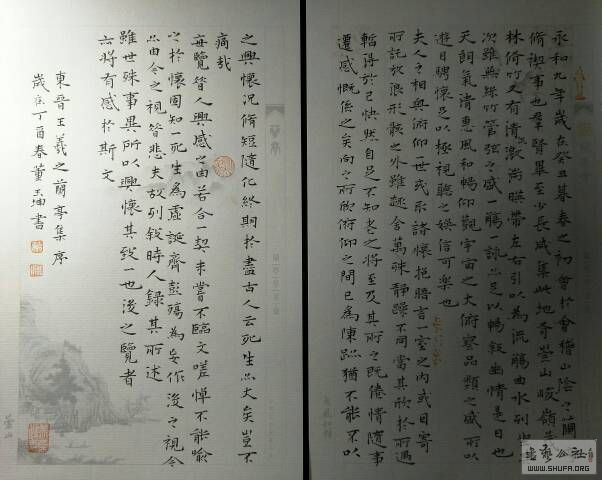 永和九年歲在癸丑暮春之初會於會稽山陰之蘭
脩禊事也羣賢畢至少長咸集此地有崇山峻嶺茂
林脩竹又有清流激湍暎帶左右引以為流觴曲水列坐
次雖無絲竹管弦之盛一觴一詠亦足以暢敘幽情是日也
天朗氣清惠風和暢仰觀宇宙之大俯察品類之盛所以
遊目騁懷足以極視聽之娛信可樂也
夫人之相與俯仰一世或取諸懷抱悟言一室之內或因寄
所託放浪形骸之外雖趣舍萬殊靜躁不同當其欣於所遇
暫得於己快然自足不知老之將至及其所之既倦情隨事
遷感慨係之矣向之所欣俯仰之間已為陳跡猶不能不以
之興懷況脩短隨化終期於盡古人云死生亦大矣豈不
痛哉
每覽昔人興感之由若合一契未嘗不臨文嗟悼不能喻
之於懷固知一死生為虛誕齊彭殤為妄作後之視今
亦由今之視昔悲夫故列敘時人錄其所述
雖世殊事異所以興懷其致一也後之覽者
亦將有感於斯文
東晉王羲之蘭亭集序
歲在丁酉春董玉坤書
WWW.SHUFA.ORG